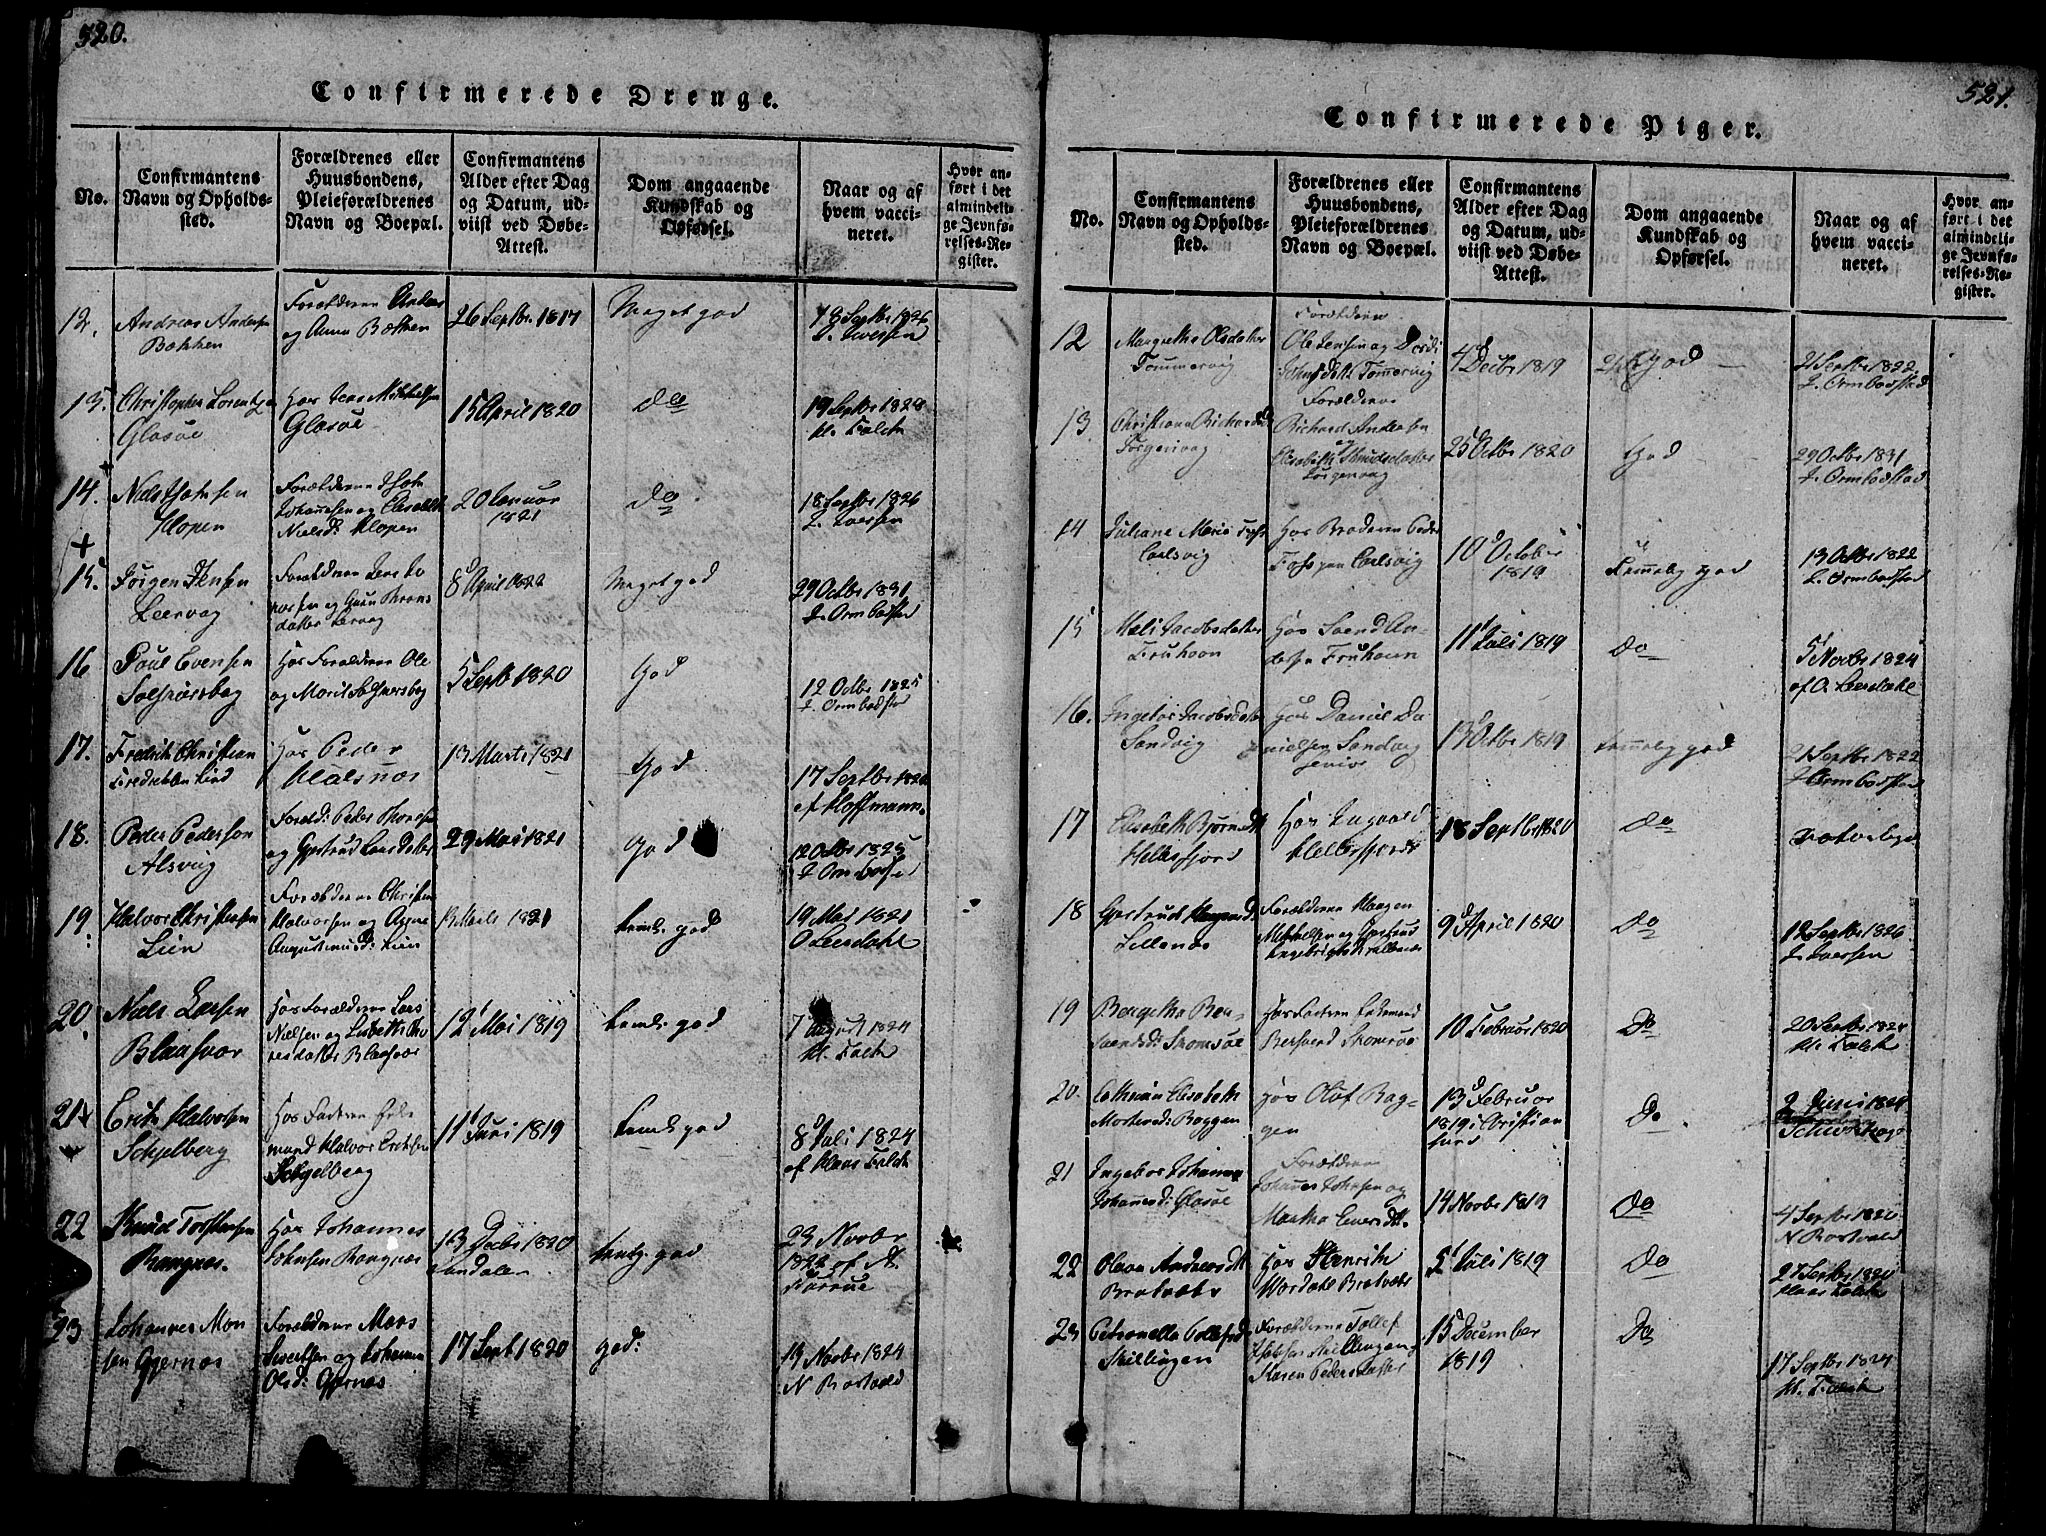 520.
Confirmerede Drenge.
No.
Confirmantens
Navn og Opholds-
sted.
Forældrenes eller
Huusbondens,
Pleieforældrenes
Navn og Boepæl.
Confirmantens
Alder efter Dag
og Datum, ud-
viist ved Døbe-
Attest.
Dom angaaende
Kundskab og
Opførsel.
Naar og af
hvem vacci-
neret.
Hvor an-
ført i det
almindeli-
ge Jevnfø-
relses-Re-
gister.
12.
Andreas Andersen
Bækken
Forældrene Anders
og Anne Bækken
26 Septbr 1817
Meget god
18 Septbr 1826
Iversen
13.
Christopher Lorentzen
Glosøe
Hos Jens Mikkelsen
Glosøe
15 April 1820
do
19 Septbr 1828
Kl. Falch
14.
Niels Johnsen
Klopen
Forældrene John
Johannesen og Elisabeth
Nielsd: Klopen
20 Januar
1821
do
18 Septbr 1826
J. Iversen
15.
Jørgen Jensen
Leervog
datter Lervog
8 April 1822
Meget god
29 Octbr 1831
J. Ormbostad
16
Poul Evensen
Hos Forældrene Ole
og Marit
5 Septb 1820
God
12 Octbr 1825
J. Ormbostad
17.
Fredrik Christian
Fredriksen Lind
Hos Peder
13 Marts 1821
God
17 Septbr
af Hoffmann.
18.
Peder Pedersen
Alsvig
Foreld: Peder Thoresen
og Gjertrud Larsdatter
29 Mai 1821
God
12 Octbr 1825
J. Ormbostad
19.
Halvor Christensen
Lien
Forældrene Christen
Halvorsen og
Augustinusd: Lien
13 Marts 1821
temel: god
19 Mai 1821
O Leerdahl
20.
Niels Larsen
Blaasvær
Hos Forældrene Lars
Nielsen og Lisbeth Tho
resdatter Blaasvær
12 Mai 1819
temel: god
7 August 1824
Kl. Falch
21
Erik Halvorsen
Schjelberg
Hos Faderen Føde
mand Halvor Eriksen
Schjelberg
11 Juni 1819
temel: god
8 Juli 1824
af Klaus Falch
22
Knud Torstensen
Rangnæs.
Hos Johannes
Johnsen Rangnæs
13 Decbr 1820
Sundalen
temel: god
23 Novbr
1822 af
23
Johannes Mon
sen Gjernæs
Forældrene Mons
Sivertsen og Johanne
Olsd: Gjernæs
17 Sept. 1820
god:
19 Novbr 1824
N Rostvold
521.
Confirmerede Piger.
No.
Confirmantens
Navn og Opholds-
sted.
Forældrenes eller
Huusbondens,
Pleieforældrenes
Navn og Boepæl.
Confirmantens
Alder efter Dag
og Datum, ud-
viist ved Døbe-
Attest.
Dom angaaende
Kundskab og
Opførsel.
Naar og af
hvem vacci-
neret.
Hvor an-
ført i det
almindeli-
ge Jevnfø-
relses-Re-
gister.
12
Margrethe Olsdatter
Tømmervig
Forældrene
Ole Jensen og Dordi
Johnsdatt Tømmervig
4 Decbr 1819
God
21 Septbr 1822
J. Ormbostad
13.
Christiana Richardsd
Torgenvog
Forældrene
Richard Andersen
og
Elisabeth Knudsdatter
Torgenvog
25 Octbr 1820
God
29 Octbr 1831
J. Ormbostad
14
Juliane Marie
Carlsvig
Hos Broderen Peder
Carlsvig
10 October
1819
Temelig god
13 Octbr 1822
J. Ormbostad
15
Mali Jacobsdatter
Fruhoun
Hos Svend An-
dersen Fruhoun
11 Juli 1819
Do
5 Novbr 1824
af O. Leerdahl
16.
Ingebor Jacobsdatter
Sandvig
Hos Daniel Da
nielsen Sandvig
13 Octbr 1819
temelig god
21 Septbr 1822
J Ormbostad
17
Elisabeth Bjørnsdt
Hellesfjord
Hos Ingvald
Hellesfjord
18 Septbr 1820
Do
naturlige
18
Gjertrud Haagensd:
Lillenæs
Forældrene Haagen
Mikkelsen og Gjertrud
Ingebrigtsd: Lillenæs
9 April 1820
Do
18 Septbr 1826
J. Iversen
19
Bengetha Ben-
Skomsøe
Hos Faderen Fødemand
Skomsøe
10 Februar 1820
Do
20 Septbr 1824
Kl. Falch
20.
Cathrine Elisabeth
Mortensd: Baggen
Hos Oluf Bag-
gen
13 Februar
1819 i Christian
sund
Do
2 Juni 1824
21
Ingebor Johanna
Johannesd: Glosøe
Forældrene
Johannes Johnsen og
Martha Iversdtt.
14 Novbr 1819
Do
4 Septbr 1820
N Rostvold
22
Olava Andreasdt
Bratvær
Hos Henrik
Werdahl Bratvær
5 Juli 1819
Do
27 Septbr 1820
Klaus Falch
23
Petronella Tollefsd
Skillingen
Forældrene Tollef
Skillingen og
Karen Pedersdatter
15 December
1819
Do
17 Septbr 1824
Kl. Falch